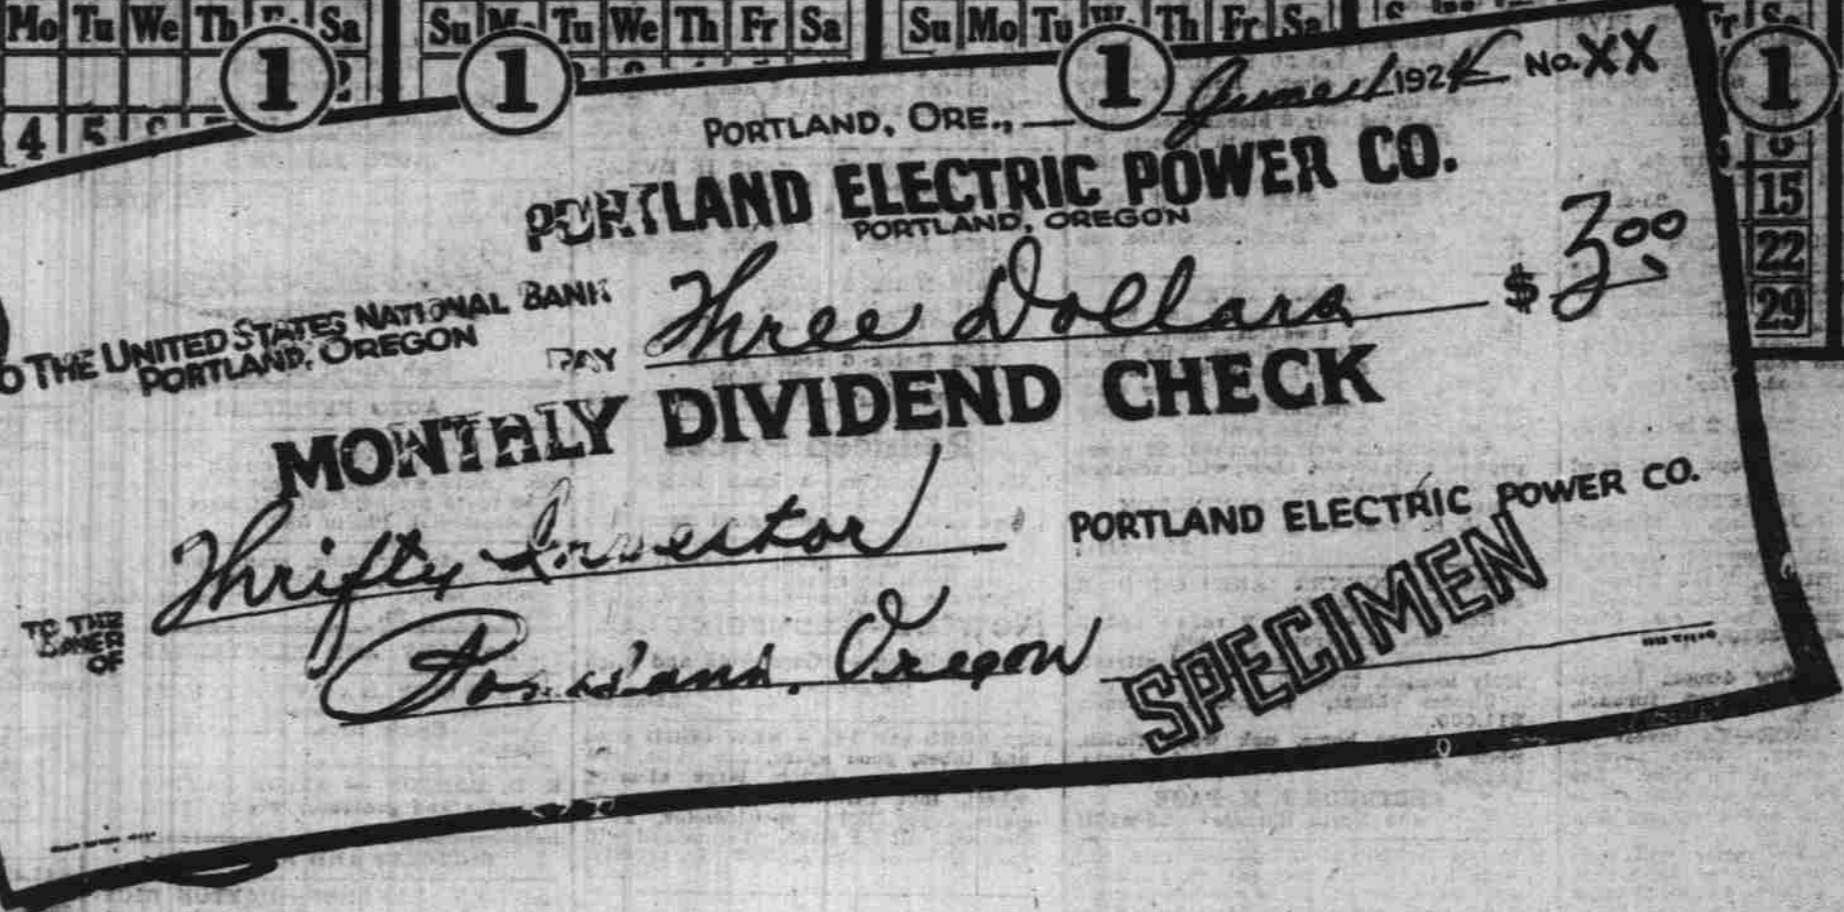 Mo Tu We Th Sa Su Mo Tu We Th Fr Sa Su Mo Tu We Th Fr Sa Fr Sa
1 1 1 1
4 5
15
22
29
PORTLAND, ORE., June 1 192 No. XX
PORTLAND ELECTRIC POWER CO.
PORTLAND, OREGON
TO THE UNITED STATES NATIONAL BANK
PORTLAND, OREGON
PAY Three Dollars $ 3.00
MONTHLY DIVIDEND CHECK
TO THE
ORDER
OF
Thrifty Investor
Portland, Oregon
PORTLAND ELECTRIC POWER CO.
SPECIMEN